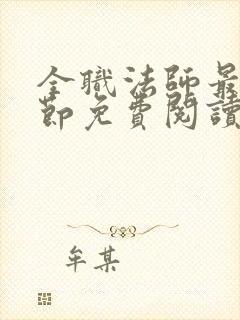 全職法師最
節免費閱讀
牟某